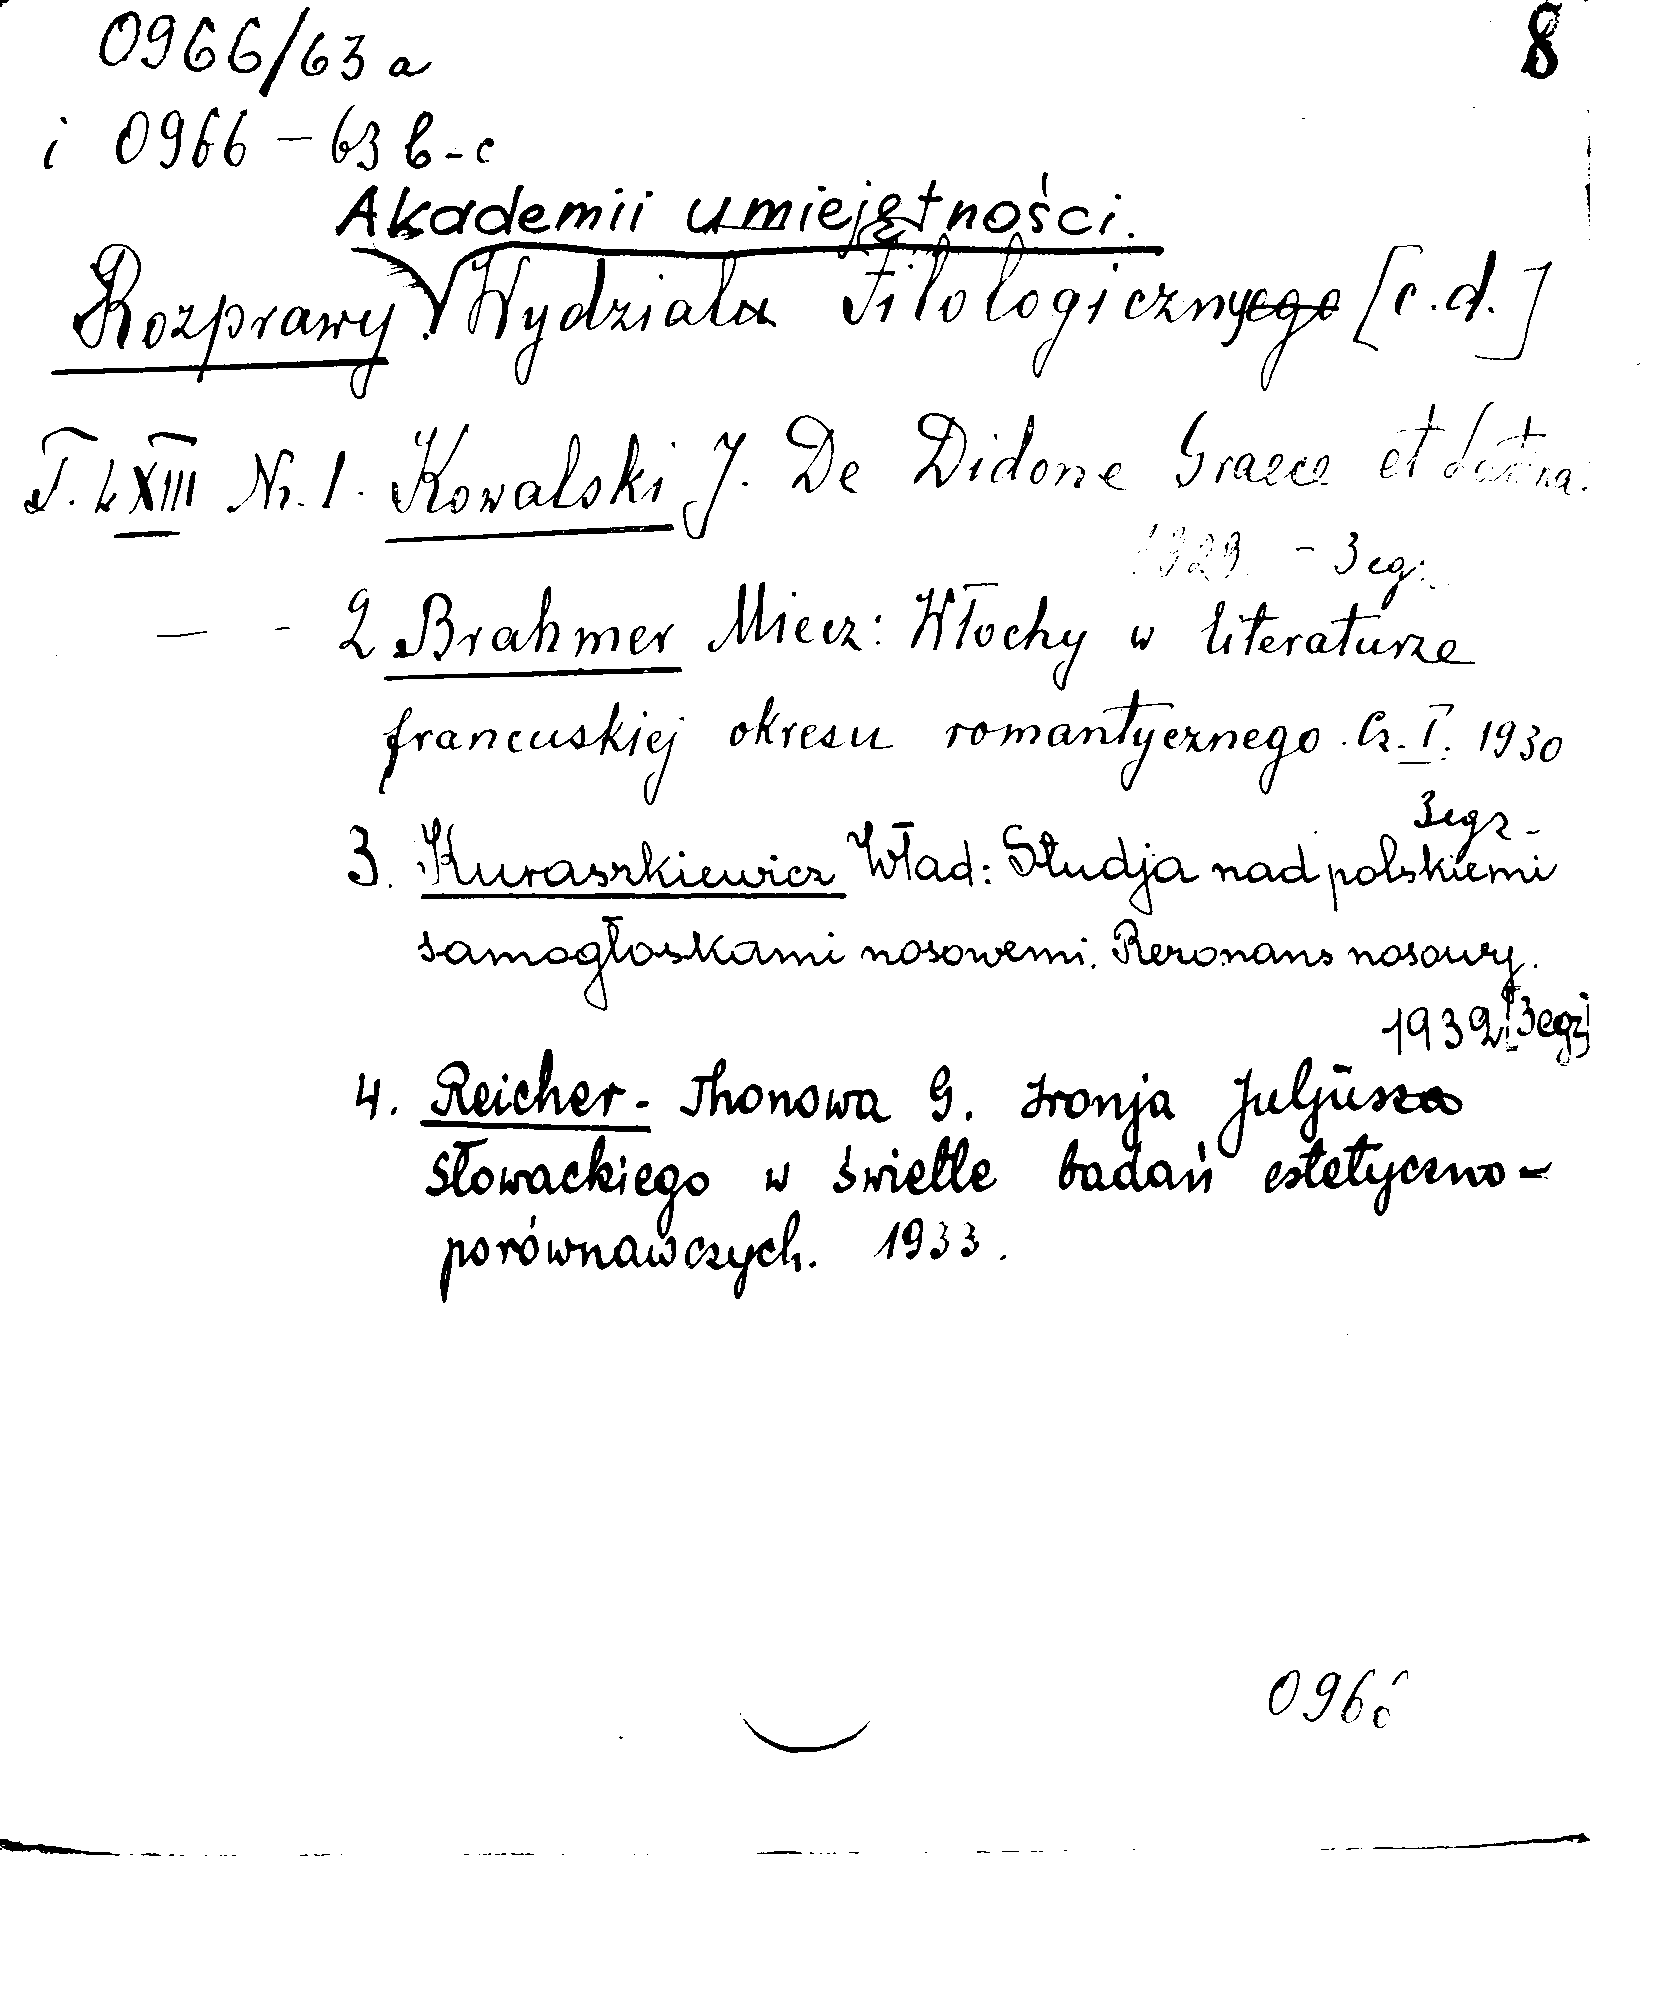 0966/63 a
8
i 0966 - 63 b-c
Akademii umiejętności.
Rozprawy Wydziału Filologicznego [c.d.]
T. LXIII Nr. 1. Kowalski J. De Didone Graeca et Latina.
1929 - 3 eg.
— - 2 Brahmer Miecz: Włochy w literaturze
francuskiej okresu romantycznego. Cz. I. 1930
3 egz -
3. Kuraszkiewicz Wład: Studja nad polskiemi
samogłoskami nosowemi. Rezonans nosowy.
1932 [3 egz]
4. Reicher - Thonowa G. Ironja Juljusza
Słowackiego w świetle badań estetyczno-
porównawczych. 1933.
0966